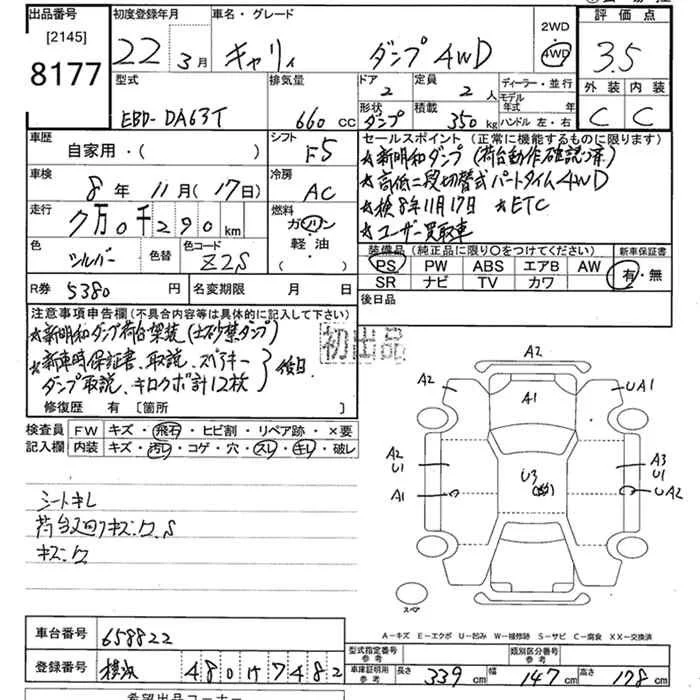 出品番号
[2145]
8177
初度登録年月
22年 3月
車名・グレード
キャリィ ダンプ 4WD
2WD
4WD
評価点
3.5
外装 内装
C C
型式
EBD-DA63T
排気量
660 cc
ドア
2
定員
2人
形状
ダンプ
積載
350kg
ディーラー・並行
モデル年式 年
ハンドル 左・右
車歴
自家用・( )
シフト
F5
車検
8年11月(17日)
冷房
AC
走行
7万0千290km
燃料
ガソリン
軽・油
( )
色
シルバー
色替
色コード
Z2S
R券
5380円
名変期限 月 日
セールスポイント (正常に機能するものに限ります)
★新明和ダンプ(荷台動作確認済)
★高低二段切替式パートタイム4WD
★検8年11月17日 ★ETC
★ユーザー買取車
装備品(純正品に限り○をつけてください)
PS PW ABS エアB AW
SR ナビ TV カワ
新車保証書
有・無
後日品
注意事項申告欄(不具合内容等は具体的に記入して下さい)
★新明和ダンプ荷台架装(土砂禁ダンプ)
★新車時保証書、取説、スペアキー
ダンプ取説、キロクボ計12枚 } 後日
修復歴 有 [箇所 ]
初出品
検査員記入欄
FW キズ・飛石・ヒビ割・リペア跡・×要
内装 キズ・汚レ・コゲ・穴・スレ・キレ・破レ
シートキレ
荷台廻りキズ、ワ、S
キズ、ワ
A2
A2
A1
UA1
A2
U1
U3
A3
U1
A1
UA2
スペア
A-キズ E-エクボ U-凹み W-補修跡 S-サビ C-腐食 XX-交換済
車台番号
658822
登録番号
横浜 480け7482
型式指定番号
参考
類別区分番号
参考
車庫証明用
参考
長さ 339cm
幅 147cm
高さ 178cm
希望出品コーナー